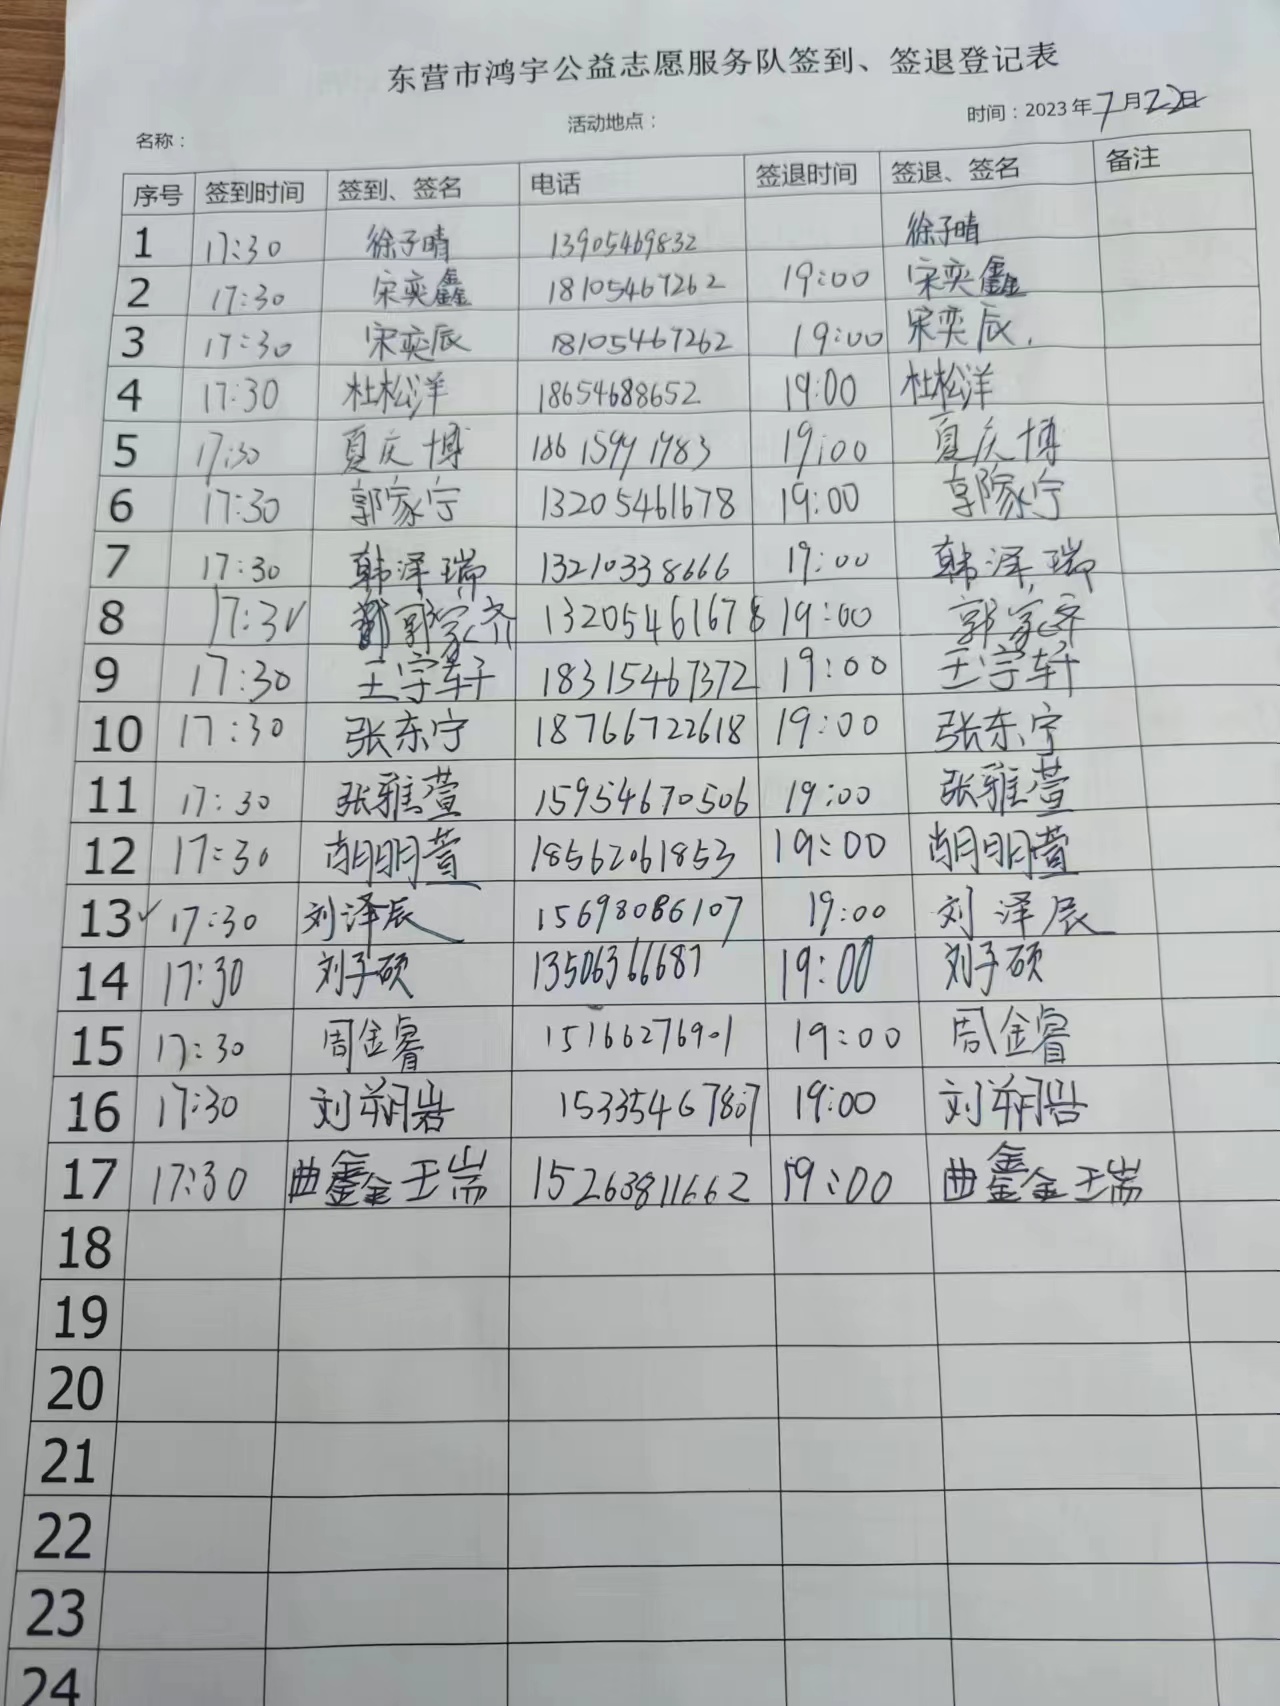 东营市鸿宇公益志愿服务队签到、签退登记表
名称： 活动地点： 时间：2023年7月22日
序号 签到时间 签到、签名 电话 签退时间 签退、签名 备注
1 17:30 徐子晴 13905469832 徐子晴
2 17:30 宋奕鑫 18105467262 19:00 宋奕鑫
3 17:30 宋奕辰 18105467262 19:00 宋奕辰.
4 17:30 杜松洋 18654688652 19:00 杜松洋
5 17:30 夏庆博 18615991983 19:00 夏庆博
6 17:30 郭家宁 13205461678 19:00 郭家宁
7 17:30 韩泽瑞 13210338666 19:00 韩泽瑞
8 17:30 郭家齐 13205461678 19:00 郭家齐
9 17:30 王宇轩 18315467372 19:00 王宇轩
10 17:30 张东宁 18766722618 19:00 张东宁
11 17:30 张雅萱 15954670506 19:00 张雅萱
12 17:30 胡明萱 18562061853 19:00 胡明萱
13 ✓ 17:30 刘泽辰 15698086107 19:00 刘泽辰
14 17:30 刘子硕 13506366687 19:00 刘子硕
15 17:30 周金睿 15166276901 19:00 周金睿
16 17:30 刘朔岩 15335467807 19:00 刘朔岩
17 17:30 曲鑫瑞 15263811662 19:00 曲鑫瑞
18
19
20
21
22
23
24